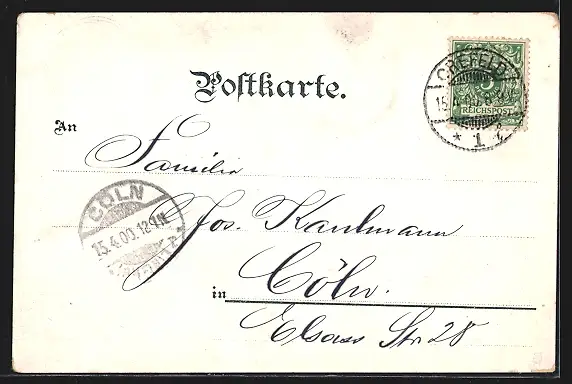 Postkarte.
CREFELD
15.4.00.
* 1 c
5
REICHSPOST
An
Familie
CÖLN
15.4.00.12-1N
Jos. Kaulmann
in Cöln.
Elsass Str 28